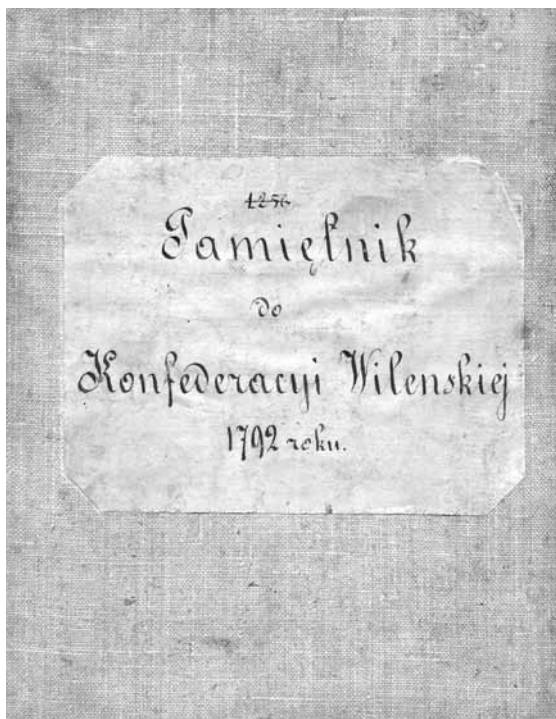 4256
Pamiętnik
do
Konfederacyi Wilenskiej
1792 roku.